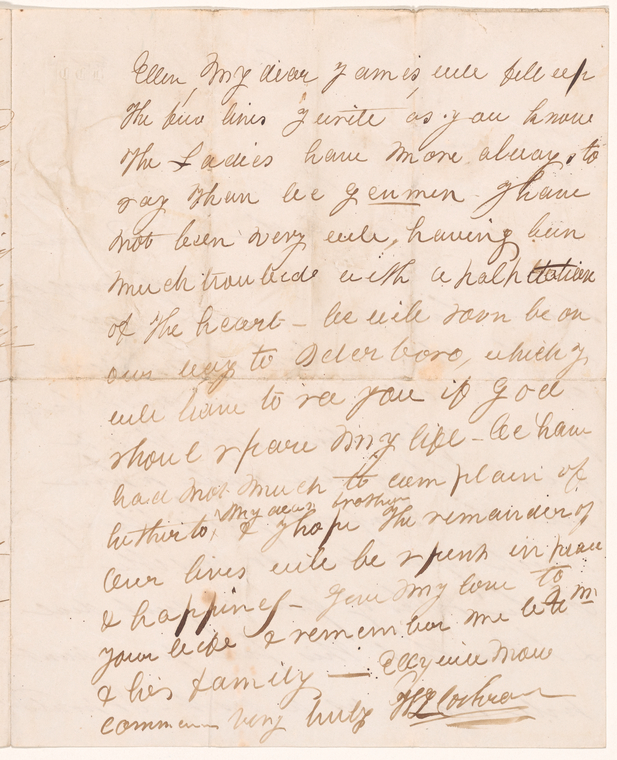 Ellen, My dear James will fill up
the few lines I write as you know
the Ladies have more always to
say than we Genmen I have
not been very well, having been
much troubled with a palpitation
of the heart – We will soon be on
our way to Peterboro, which I
will have to see you if God
shoul spare my life – We have
had not much to complain of
hitherto, My dear brother
& I hope the remainder of
our lives will be spent in peace
& happiness – Give my love to
your wife & remember me to
& his family –